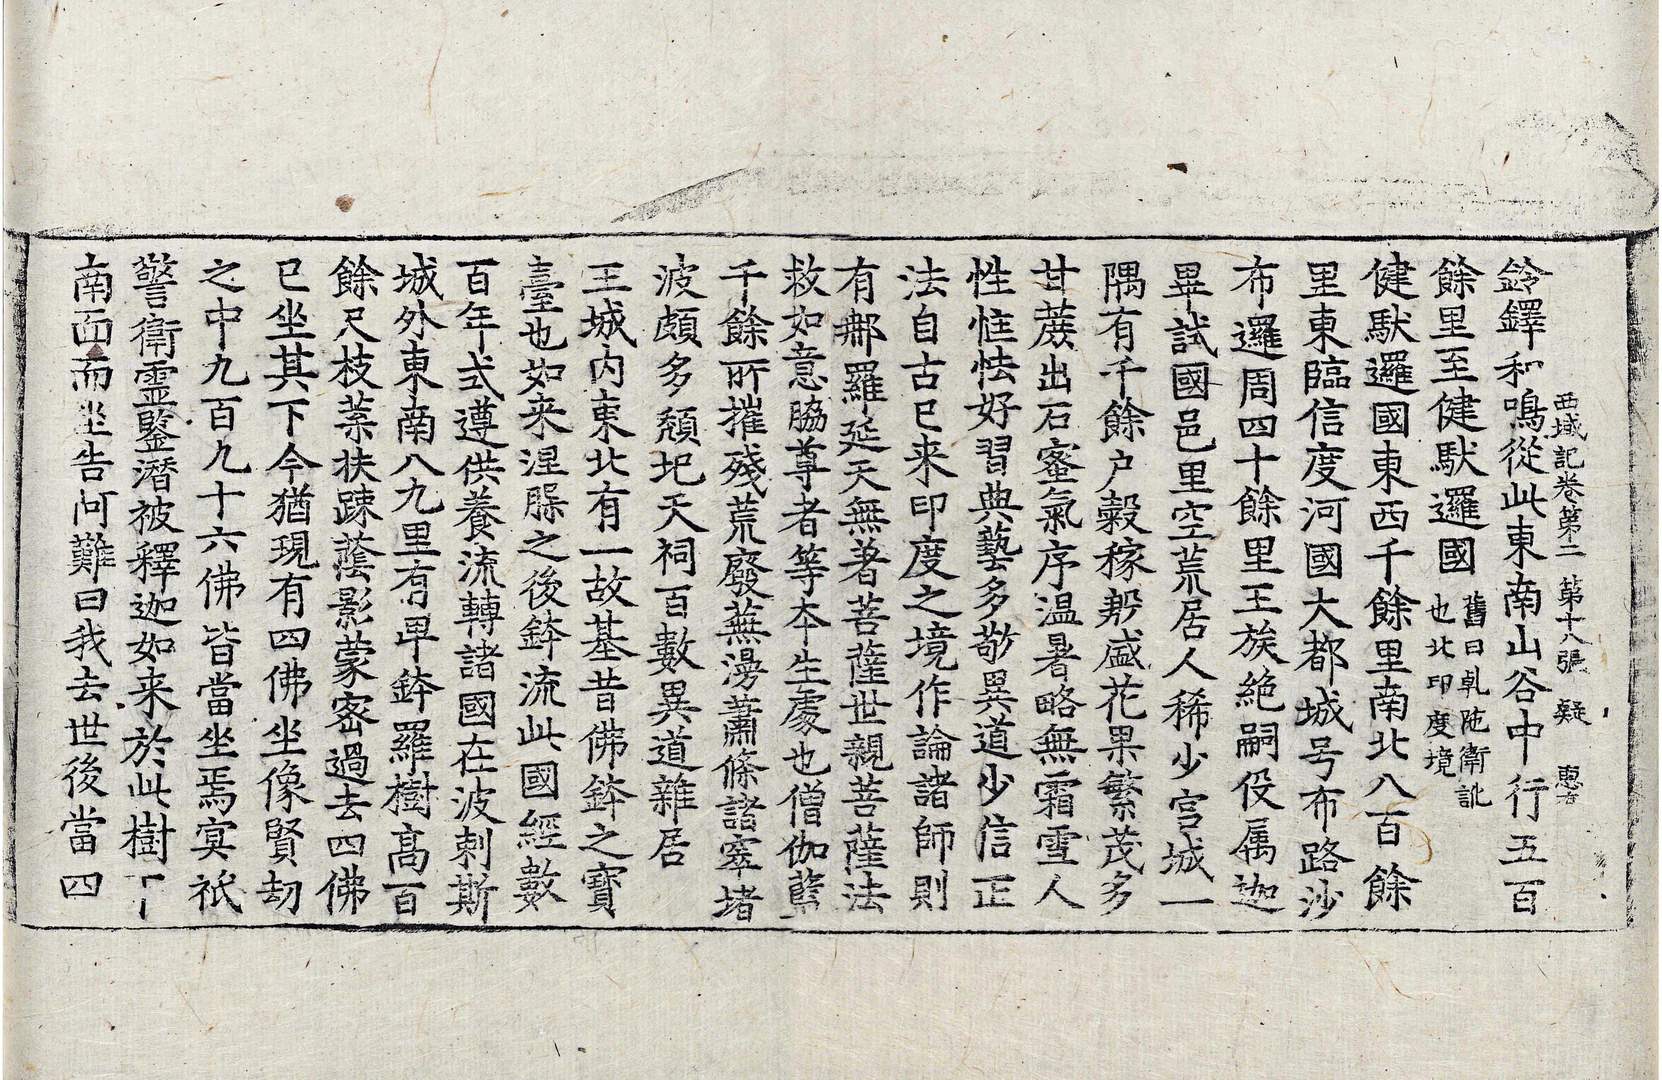 西域記卷第二 第十八張 疑
鈴鐸和鳴從此東南山谷中行五百
餘里至健馱邏國舊曰乹陁衛訛也北印度境
健馱邏國東西千餘里南北八百餘
里東臨信度河國大都城号布路沙
布邏周四十餘里王族絶嗣伇属迦
畢試國邑里空荒居人稀少宮城一
隅有千餘户穀稼殷盛花果繁茂多
甘蔗出石蜜氣序温暑略無霜雪人
性恇怯好習典藝多敬異道少信正
法自古已来印度之境作論諸師則
有郍羅延天無著菩薩世親菩薩法
救如意脇尊者等夲生處也僧伽藍
千餘所摧殘荒廢蕪漫蕭條諸窣堵
波頗多頹圯天祠百數異道雜居
王城内東北有一故基昔佛鉢之寶
臺也如来涅槃之後鉢流此國經數
百年式遵供養流轉諸國在波剌斯
城外東南八九里有卑鉢羅樹髙百
餘尺枝葉扶踈蔭影蒙宻過去四佛
已坐其下今猶現有四佛坐像賢劫
之中九百九十六佛皆當坐焉冥祇
警衛靈鑒潛被釋迦如来於此樹下
南面而坐告阿難曰我去世後當四